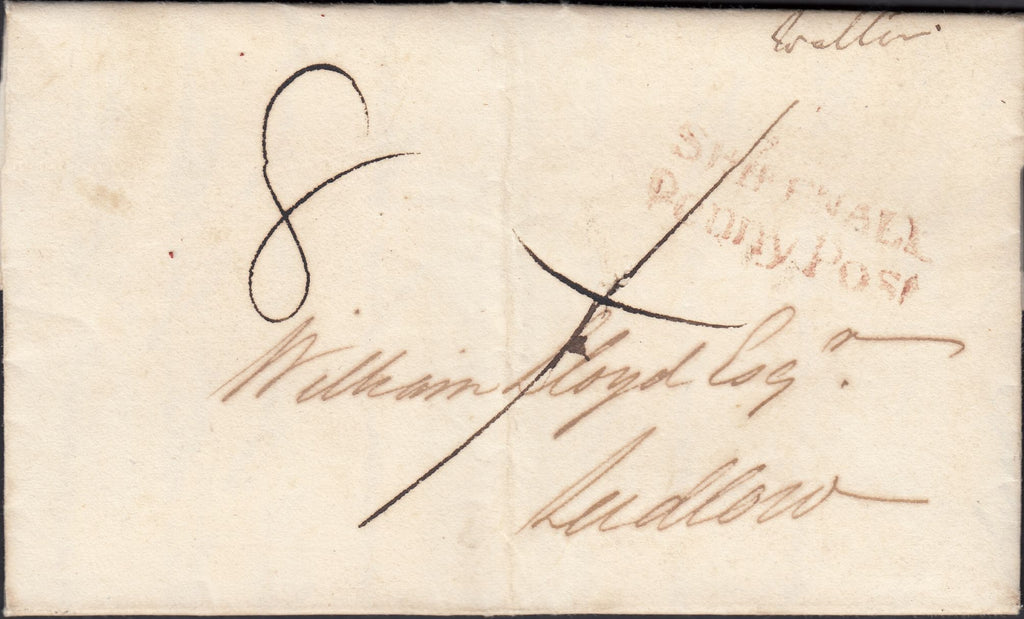 8
SHIFFNALL
Penny Post
William Lloyd Esqr.
Ludlow